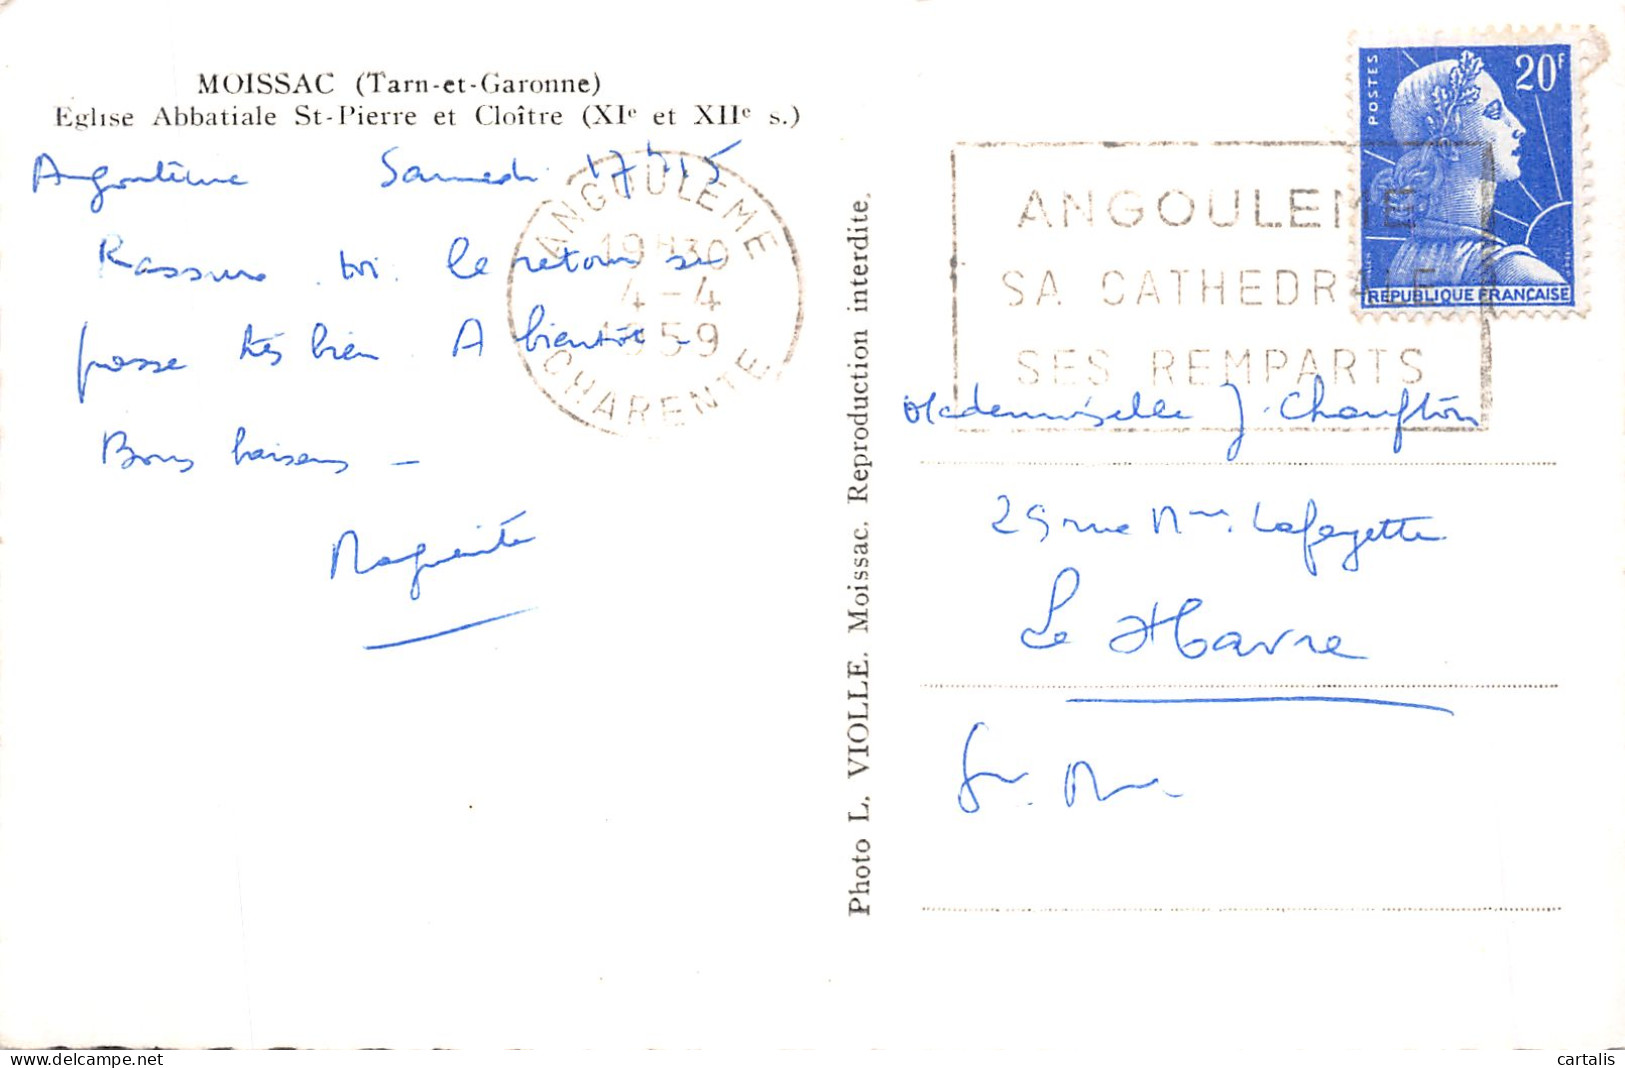 MOISSAC (Tarn-et-Garonne)
Eglise Abbatiale St-Pierre et Cloître (XIe et XIIe s.)
Angoulême Samedi 17h15
Rassure toi. le retour se
passe très bien. A bientôt -
Bons baisers -
Marguerite
ANGOULEME
19H30
4-4
1959
CHARENTE
Photo L. VIOLLE. Moissac. Reproduction interdite.
POSTES
20F
REPUBLIQUE FRANÇAISE
ANGOULEME
SA CATHEDRALE
SES REMPARTS
Mademoiselle J.
rue Lafayette
Le Havre
cartalis